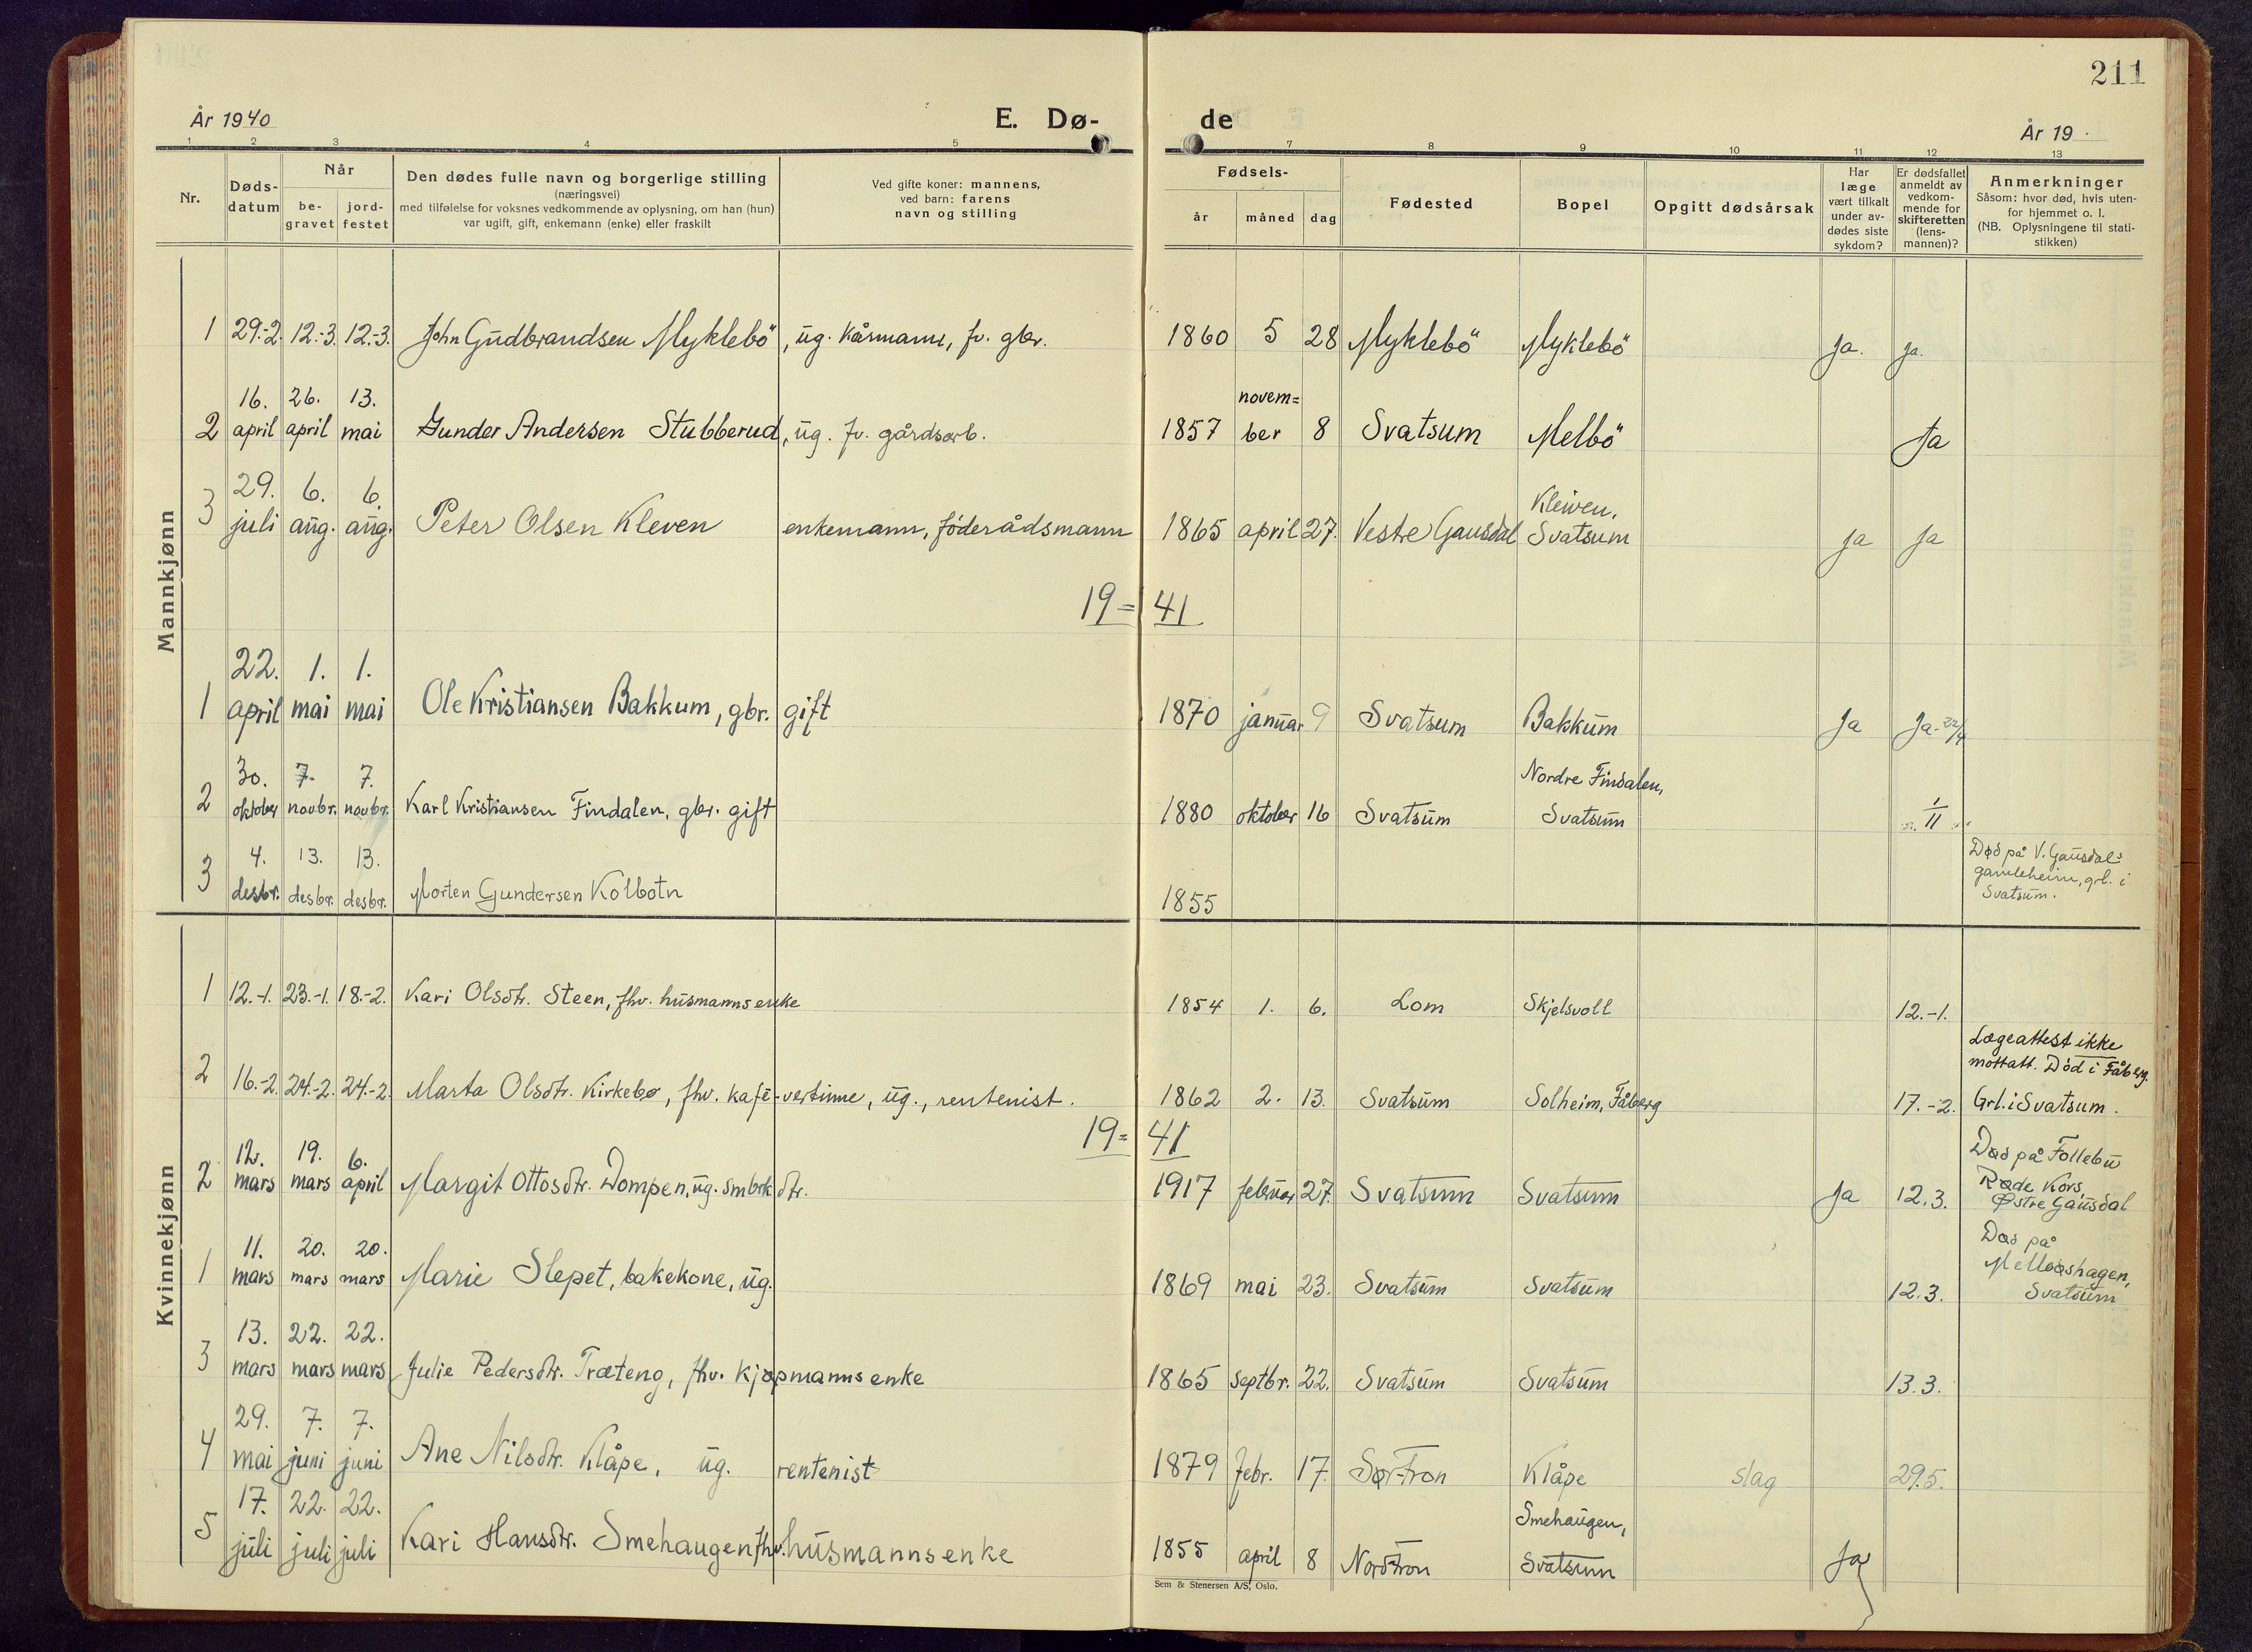 211
År 1940 E. Dø- de År 19 .
1 2 3 4 5 7 8 9 10 11 12 13
Nr. Døds-datum Når be-gravet jord-festet Den dødes fulle navn og borgerlige stilling (næringsvei) med tilføielse for voksnes vedkommende av oplysning, om han (hun) var ugift, gift, enkemann (enke) eller fraskilt Ved gifte koner: mannens, ved barn: farens navn og stilling Fødsels- år måned dag Fødested Bopel Opgitt dødsårsak Har læge vært tilkalt under av-dødes siste sykdom? Er dødsfallet anmeldt av vedkom-mende for skifteretten (lens-mannen)? Anmerkninger Såsom: hvor død, hvis uten-for hjemmet o. l. (NB. Oplysningene til stati-stikken)
Mannkjønn
1 29.-2. 12.-3. 12.-3. John Gudbrandsen Myklebö, ug. kårmann, fv. gbr. 1860 5 28 Myklebö Myklebö Ja. Ja.
16. 26. 13. novem=
2 april april mai Gunder Andersen Stubberud, ug. fv. gårdsarb. 1857 ber 8 Svatsum Melbö Ja
29. 6. 6. Kleiven,
3 juli aug. aug. Peter Olsen Kleven enkemann, föderådsmann 1865 april 27. Vestre Gausdal Svatsum Ja Ja
19= 41
22. 1. 1.
1 april mai mai Ole Kristiansen Bakkum, gbr. gift 1870 januar 9 Svatsum Bakkum Ja Ja- 22/4
30. 7. 7. Nordre Findalen,
2 oktober novbr. novbr. Karl Kristiansen Findalen, gbr. gift 1880 oktober 16 Svatsum Svatsum 1/11
4. 13. 13. Død på V. Gausdals
gamleheim, grl. i
3 desbr. desbr. desbr. Morten Gundersen Kolbotn 1855 Svatsum.
Kvinnekjønn
1 12.-1. 23.-1. 18.-2. Kari Olsdtr. Steen, fhv. husmannsenke 1854 1. 6. Lom Skjelsvoll 12.-1.
Lægeattest ikke
mottatt. Död i Fåberg.
2 16.-2. 24.-2. 24.-2. Marta Olsdtr. Kirkebø, fhv. kafé-vertinne, ug., rentenist. 1862 2. 13. Svatsum Solheim, Fåberg 17.-2. Grl. i Svatsum.
19= 41
12. 19. 6. Død på Follebu
2 mars mars april Margit Ottosdtr. Dompen, ug. smbrk. dtr. 1917 februar 27. Svatsum Svatsum Ja 12.3. Røde Kors,
Østre Gausdal
11. 20. 20. Død på
1 mars mars mars Marie Slepet, bakekone, ug. 1869 mai 23. Svatsum Svatsum 12.3. Melløshagen,
Svatsum
13. 22. 22.
3 mars mars mars Julie Pedersdtr. Træteng, fhv. kjøpmannsenke 1865 Septbr. 22. Svatsum Svatsum 13.3.
29. 7. 7.
4 mai juni juni Ane Nilsdtr. Klåpe, ug. rentenist 1879 febr. 17. Sør-Fron Klåpe slag 29.5.
17. 22. 22. Smehaugen,
5 juli juli juli Kari Hansdtr. Smehaugen fhv. husmannsenke 1855 april 8 Nord-Fron Svatsum Ja
Sem & Stenersen A/S, Oslo.